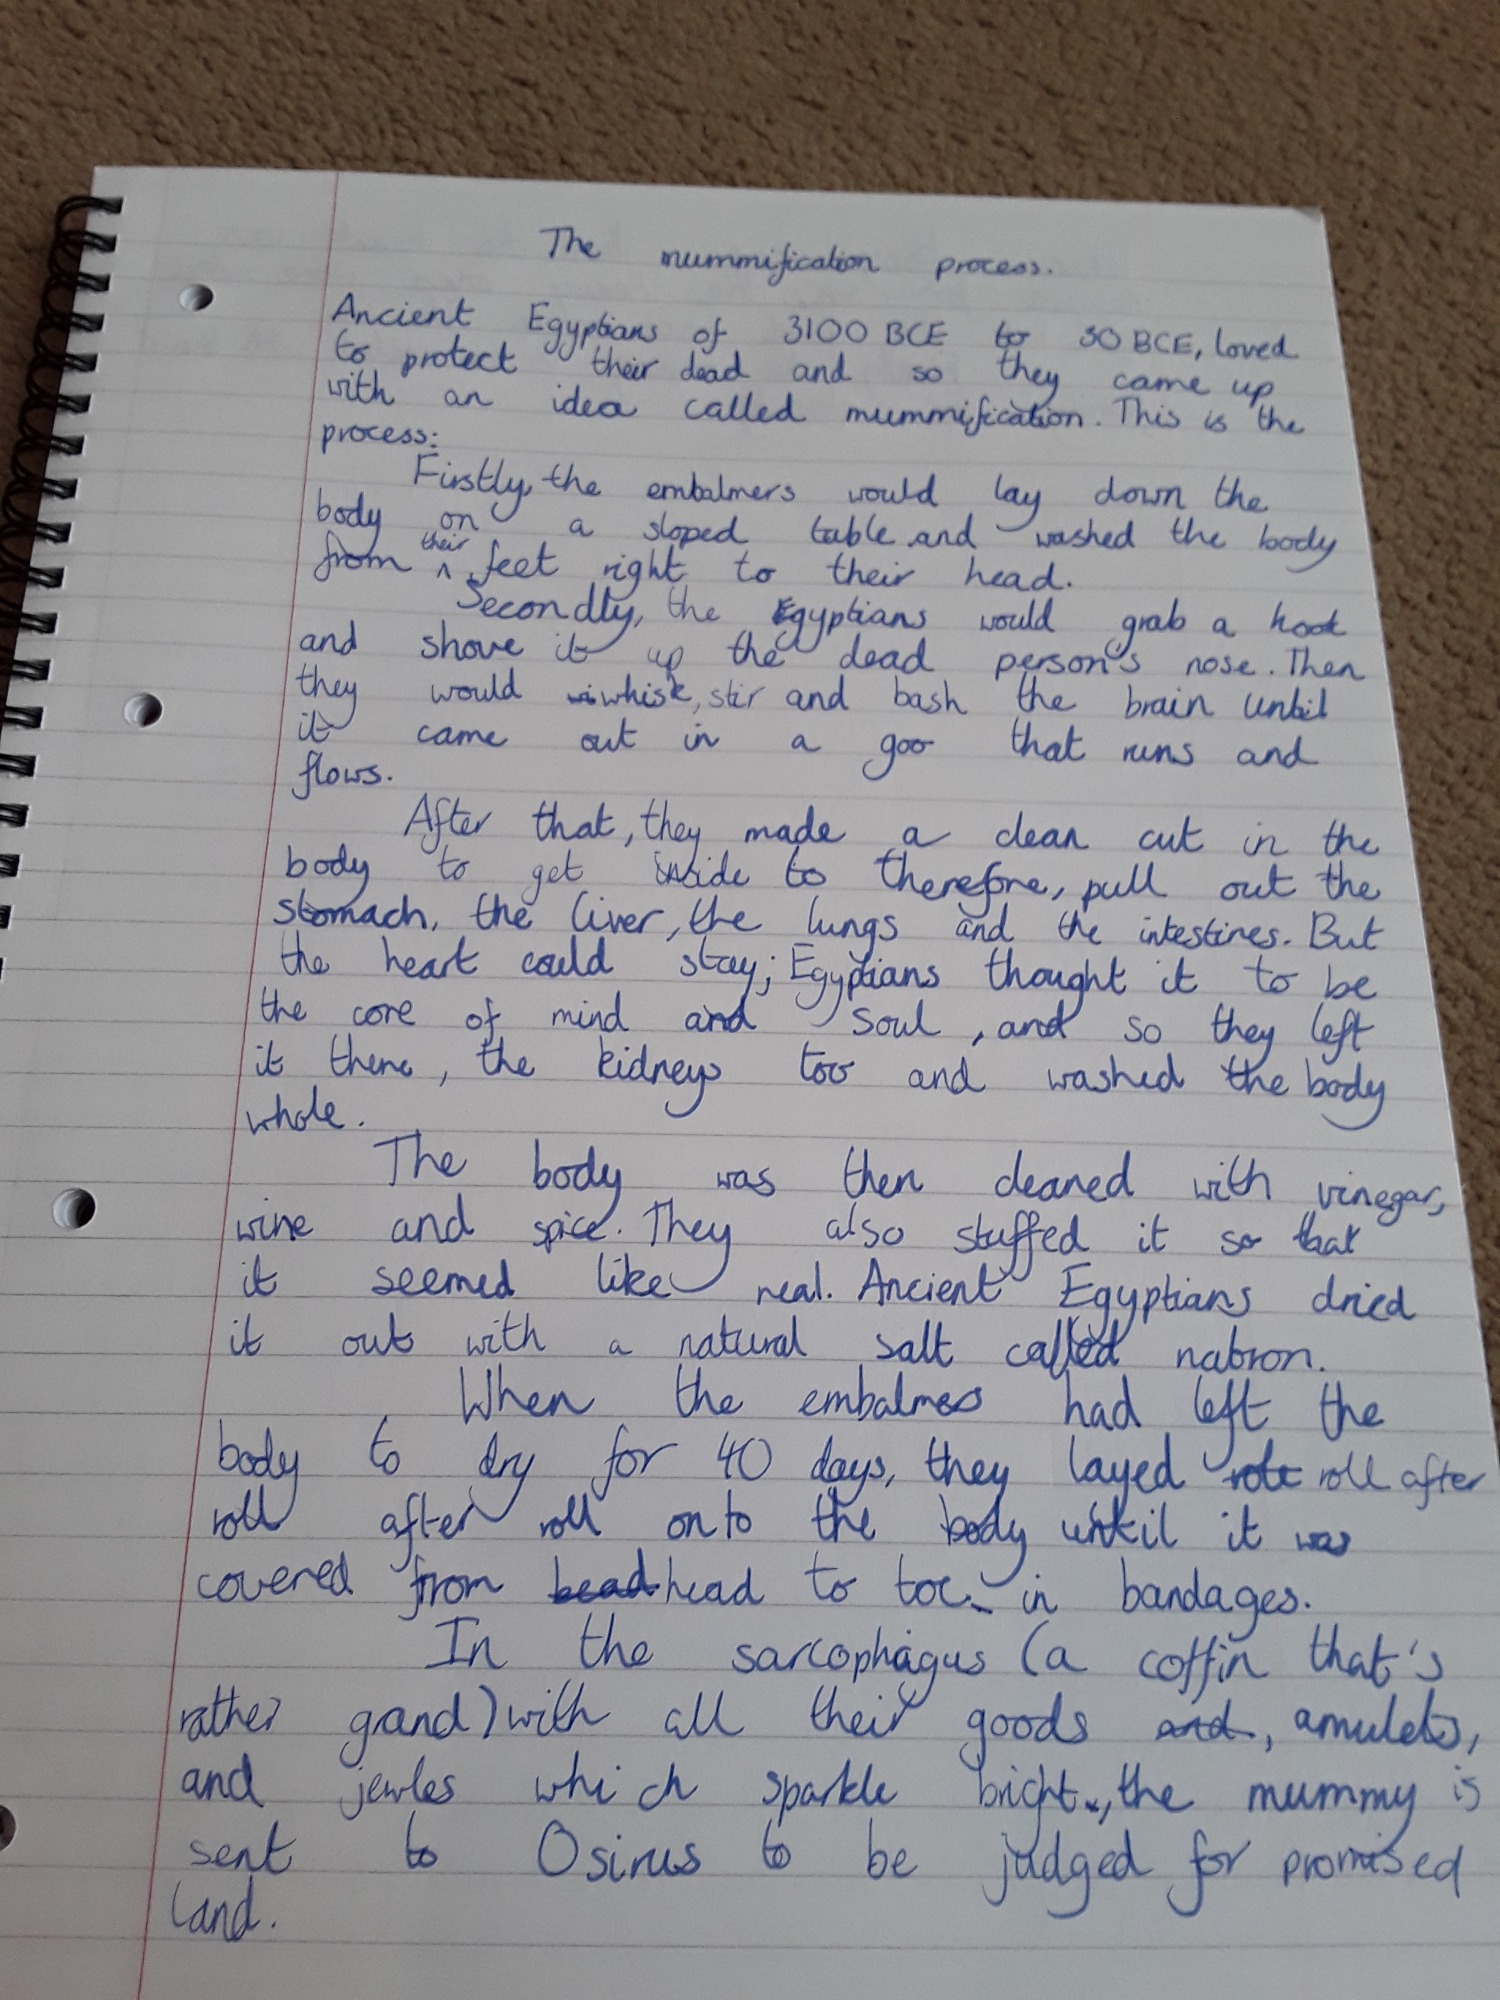 The mummification process.
Ancient Egyptians of 3100 BCE to 30 BCE, loved
to protect their dead and so they came up
with an idea called mummification. This is the
process:
Firstly, the embalmers would lay down the
body on a sloped table and washed the body
from their feet right to their head.
Secondly, the Egyptians would grab a hook
and shove it up the dead person's nose. Then
they would whisk, stir and bash the brain until
it came out in a goo that runs and
flows.
After that, they made a clean cut in the
body to get inside to therefore, pull out the
stomach, the liver, the lungs and the intestines. But
the heart could stay; Egyptians thought it to be
the core of mind and soul, and so they left
it there, the kidneys too and washed the body
whole.
The body was then cleaned with vinegar,
wine and spice. They also stuffed it so that
it seemed like real. Ancient Egyptians dried
it out with a natural salt called natron.
When the embalmers had left the
body to dry for 40 days, they layed roll after
roll after roll onto the body until it was
covered from head to toe in bandages.
In the sarcophagus (a coffin that's
rather grand) with all their goods, amulets,
and jewles which sparkle bright, the mummy is
sent to Osirus to be judged for promised
land.